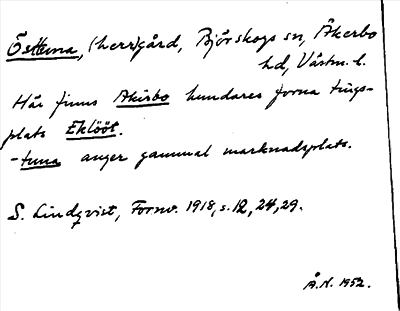 Östtuna, (herr)gård, Björskogs sn, Åkerbo
hd, Västm. l.
Här finns Akirbo hundares forna tings-
plats Eklööt.
-tuna anger gammal marknadsplats.
S. Lindqvist, Fornv. 1918, s. 12, 24, 29.
Å.N. 1952.